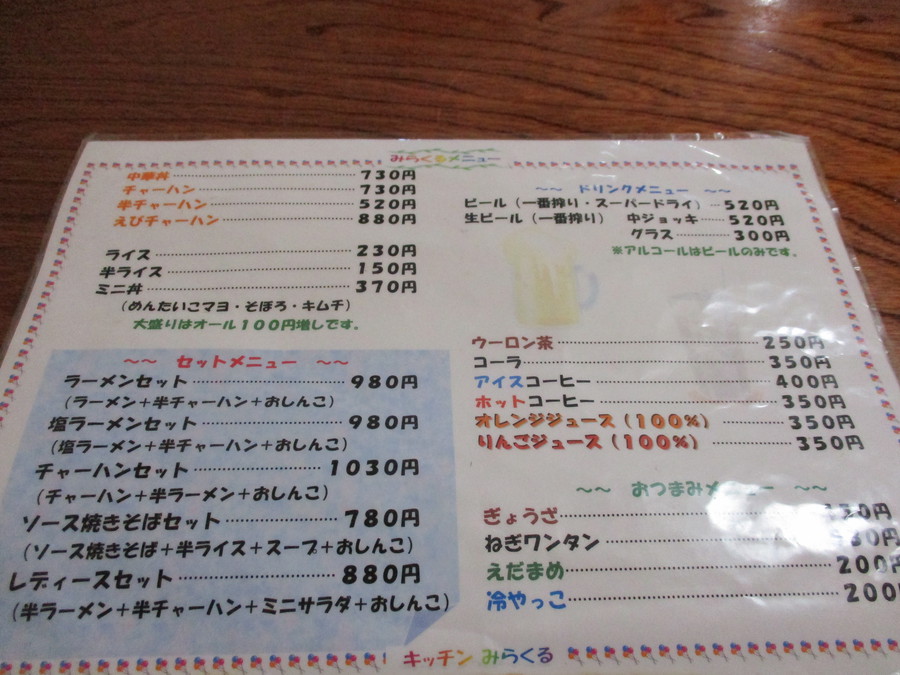 みらくるメニュー
中華丼 730円
チャーハン 730円
半チャーハン 520円
えびチャーハン 880円
ライス 230円
半ライス 150円
ミニ丼 370円
(めんたいこマヨ・そぼろ・キムチ)
大盛りはオール100円増しです。
～～ セットメニュー ～～
ラーメンセット 980円
(ラーメン+半チャーハン+おしんこ)
塩ラーメンセット 980円
(塩ラーメン+半チャーハン+おしんこ)
チャーハンセット 1030円
(チャーハン+半ラーメン+おしんこ)
ソース焼きそばセット 780円
(ソース焼きそば+半ライス+スープ+おしんこ)
レディースセット 880円
(半ラーメン+半チャーハン+ミニサラダ+おしんこ)
～～ ドリンクメニュー ～～
ビール (一番搾り・スーパードライ) 520円
生ビール (一番搾り) 中ジョッキ 520円
グラス 300円
※アルコールはビールのみです。
ウーロン茶 250円
コーラ 350円
アイスコーヒー 400円
ホットコーヒー 350円
オレンジジュース (100%) 350円
りんごジュース (100%) 350円
～～ おつまみメニュー ～～
ぎょうざ 円
ねぎワンタン 円
えだまめ 200円
冷やっこ 200
キッチン みらくる